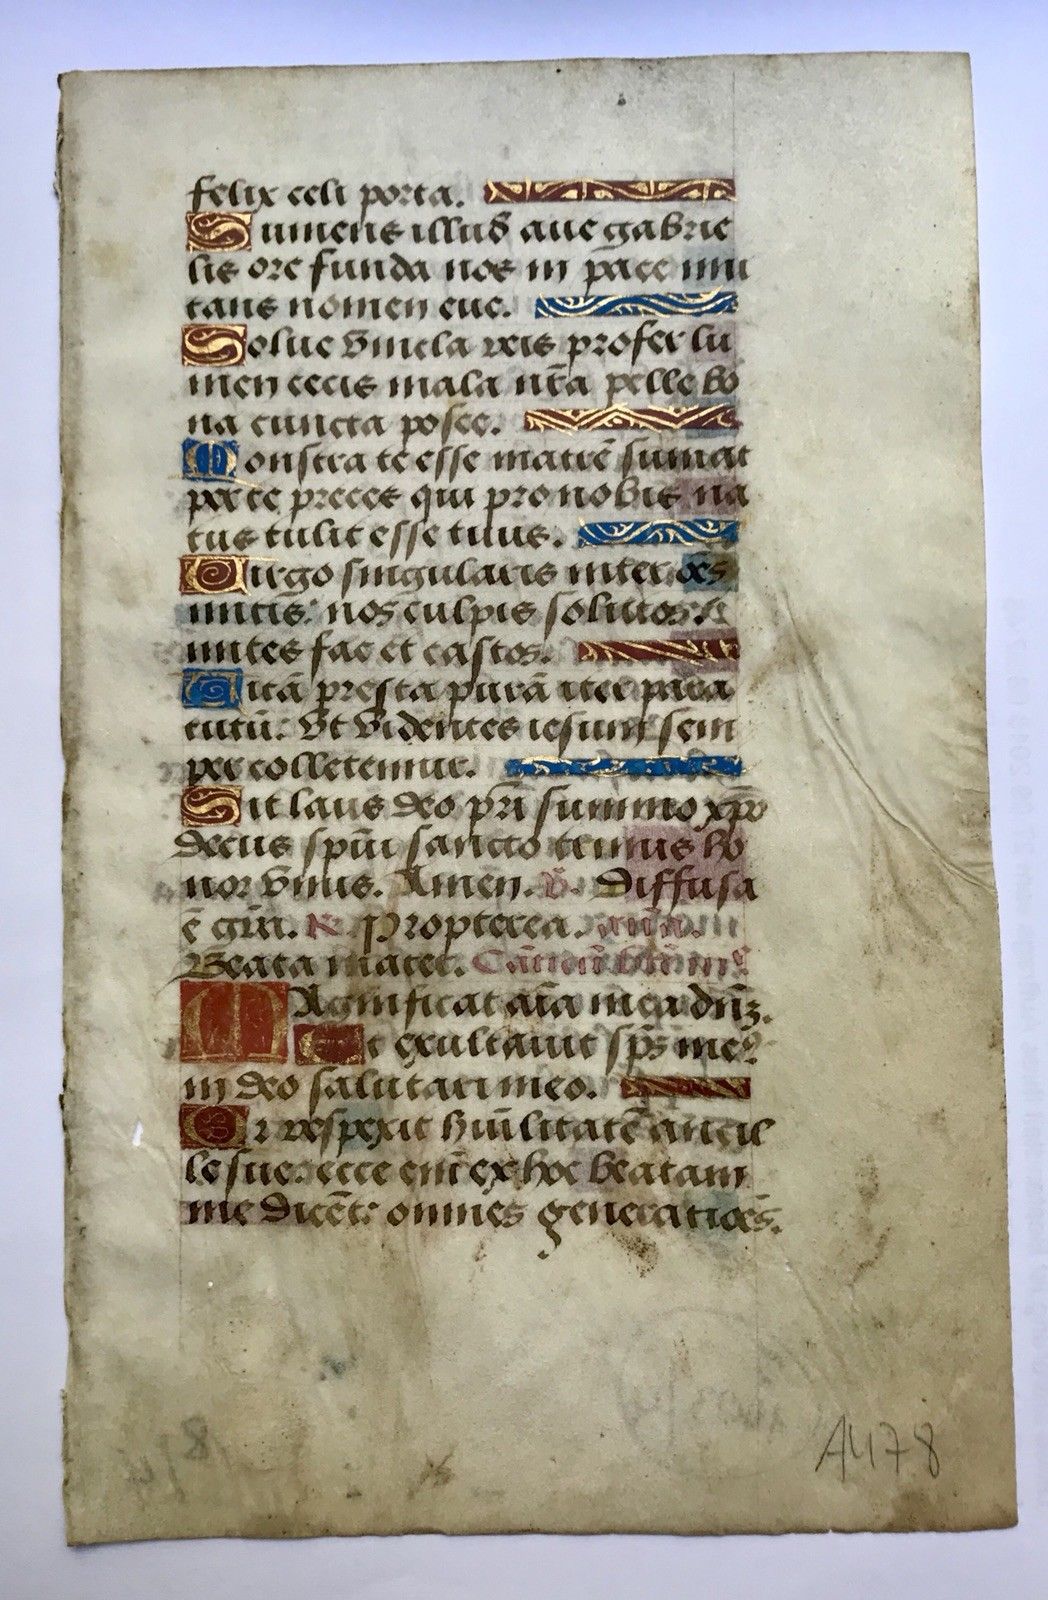 felix celi porta.
Sumens illud aue gabrie
lis ore funda nos in pace mu
tans nomen eue.
Solue vincla reis profer lu
men cecis mala nr̄a pelle bo
na cuncta posce.
Monstra te esse matrē sumat
per te preces qui pro nobis na
tus tulit esse tuus.
Uirgo singularis inter oēs
mitis: nos culpis solutos:
mites fac et castos.
Uitā presta purā iter para
tutū: vt videntes iesum sem
per colletemur.
Sit laus deo pr̄i summo xp̄o
decus sp̄ui sancto trinus ho
nor vnus. Amen. ℣. Diffusa
ē grā. ℟. Propterea. an̄a.
Beata mater. Cāticū
Magnificat aīa mea dn̄ꝫ.
Et exultauit sp̄s meꝰ
in deo salutari meo.
Qr respexit hūilitatē ancil
le sue: ecce em̄ ex hoc beatam
me dicēt omnes generatiōes.
A478